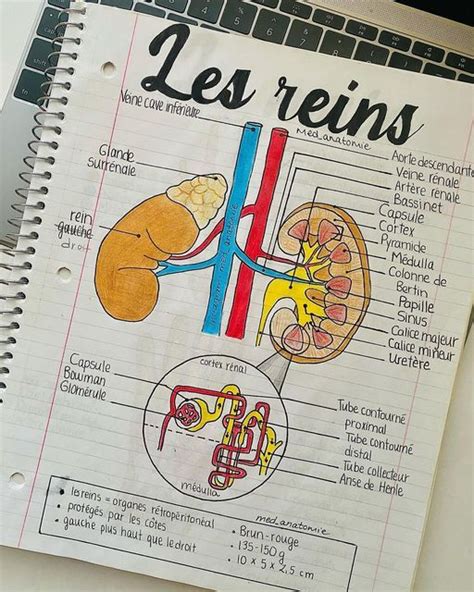 Les reins
Med_anatomie
Veine cave inférieure
Glande
surrénale
rein
gauche
droit
Aorte descendante
Veine rénale
Artère rénale
Bassinet
Capsule
Cortex
Pyramide
Médulla
Colonne de
Bertin
Papille
Sinus
Calice majeur
Calice mineur
Uretère
Capsule
Bowman
Glomérule
cortex rénal
médulla
Tube contourné
proximal
Tube contourné
distal
Tube collecteur
Anse de Henle
• les reins = organes rétropéritonéal
• protégés par les côtes
• gauche plus haut que le droit
med_anatomie
• Brun-rouge
• 135-150 g
• 10 x 5 x 2,5 cm